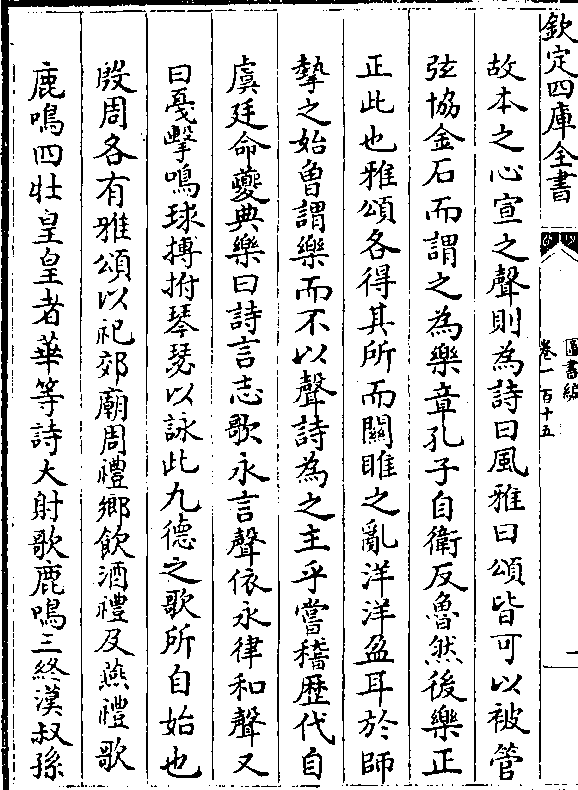 欽定四庫全書
圖書編
卷一百十五
故本之心宣之聲則為詩曰風雅曰頌皆可以被管
弦協金石而謂之為樂章孔子自衛反魯然後樂正
正此也雅頌各得其所而關雎之亂洋洋盈耳於師
摯之始曽謂樂而不以聲詩為之主乎嘗稽歴代自
虞廷命夔典樂曰詩言志歌永言聲依永律和聲又
曰戛擊鳴球搏拊琴瑟以詠此九德之歌所自始也
殷周各有雅頌以祀郊廟周禮鄉飲酒禮及燕禮歌
鹿鳴四牡皇皇者華等詩大射歌鹿鳴三終漢叔孫